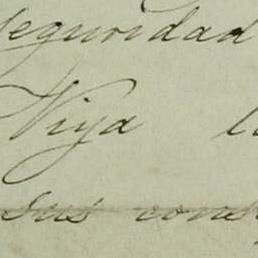 seguridad
Viya l
sus cons